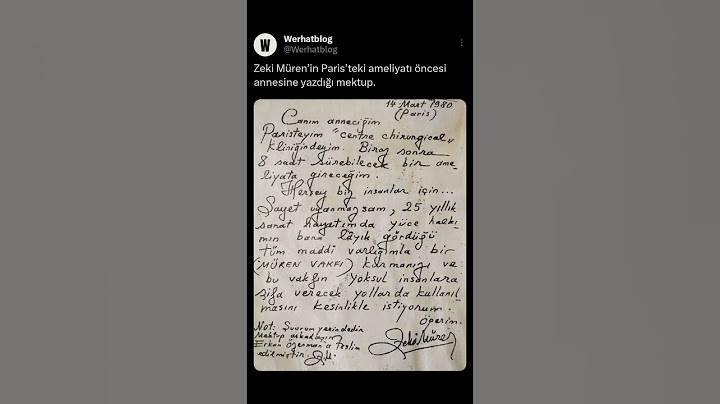 W
Werhatblog
@Werhatblog
Zeki Müren'in Paris'teki ameliyatı öncesi
annesine yazdığı mektup.
14 Mart 1980
(Paris)
Canım anneciğim
Paristeyim "centre chirurgical"
Kliniğindeyim. Biraz sonra
8 saat sürebilecek bir ame-
liyata gireceğim.
Herşey biz insanlar için...
Şayet uyanmazsam, 25 yıllık
sanat hayatımda yüce halkı-
mın bana lâyık gördüğü
tüm maddî varlığımla bir
(MÜREN VAKFI) kurmanızı ve
bu vakfın yoksul insanlara
şifa verecek yollarda kullanıl-
masını kesinlikle istiyorum.
öperim.
Not: Şuurum yerindedir
Mektup arkadaşım
Erkan Özerman'a teslim
edilmiştir. Z.M.
Zeki Müren